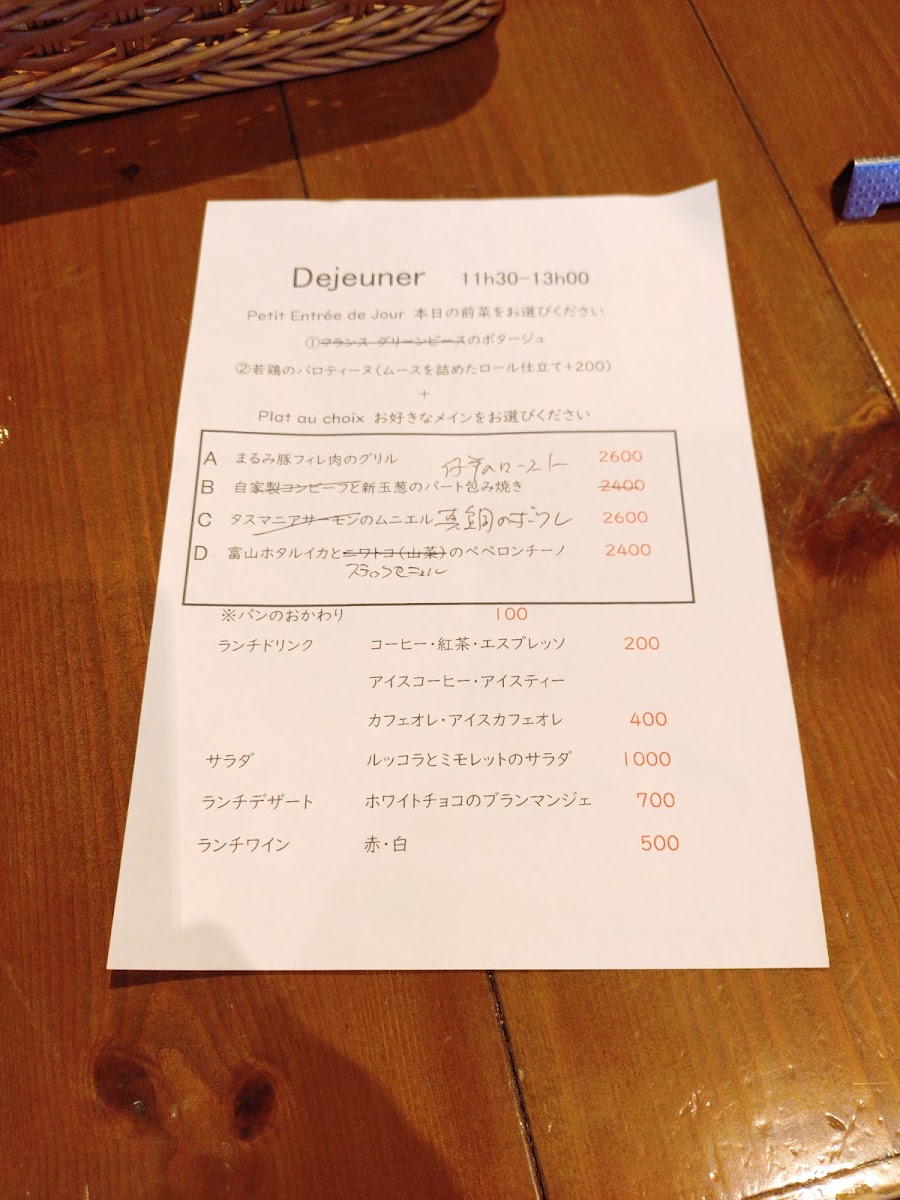 Dejeuner 11h30-13h00
Petit Entrée de Jour 本日の前菜をお選びください
①フランス グリーンピースのポタージュ
②若鶏のバロティーヌ(ムースを詰めたロール仕立て+200)
+
Plat au choix お好きなメインをお選びください
A まるみ豚フィレ肉のグリル 2600
仔羊のロースト
B 自家製コンビーフと新玉葱のパート包み焼き 2400
C タスマニアサーモンのムニエル 真鯛のポワレ 2600
D 富山ホタルイカとニワトコ(山菜)のペペロンチーノ 2400
※パンのおかわり 100
ランチドリンク コーヒー・紅茶・エスプレッソ 200
アイスコーヒー・アイスティー
カフェオレ・アイスカフェオレ 400
サラダ ルッコラとミモレットのサラダ 1000
ランチデザート ホワイトチョコのブランマンジェ 700
ランチワイン 赤・白 500